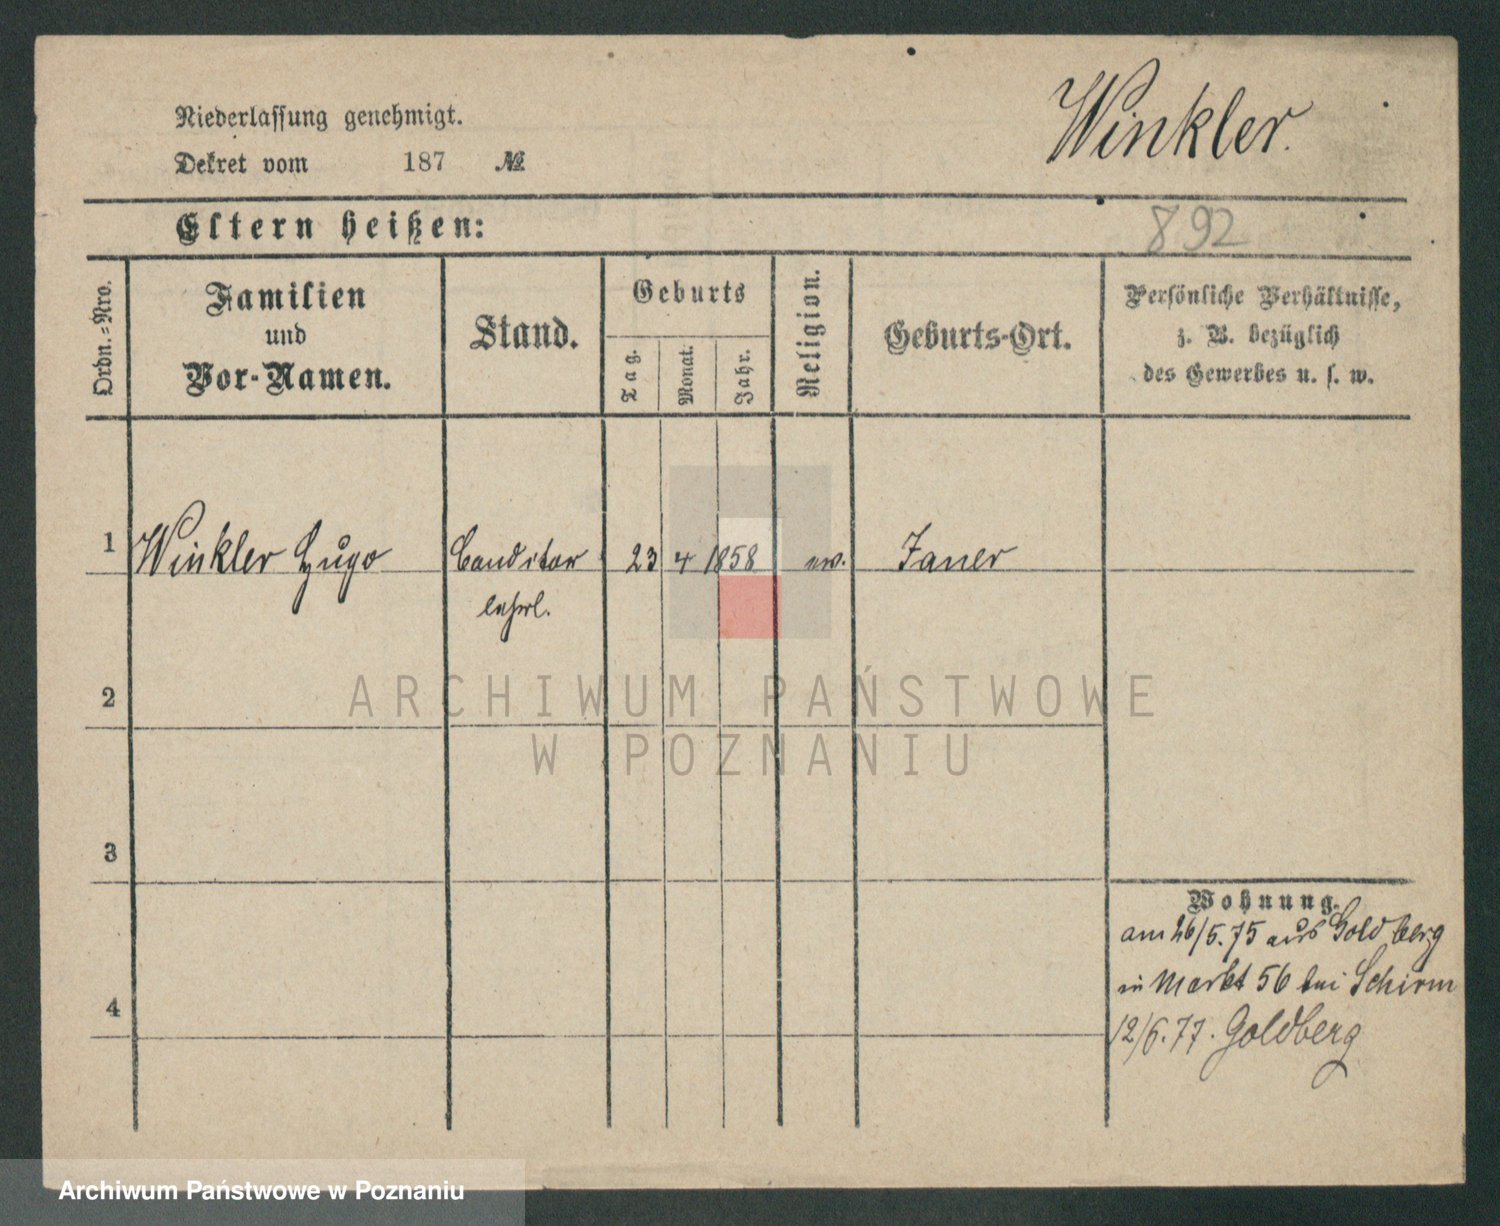 Winkler.
Niederlassung genehmigt.
Dekret vom 187 №
Eltern heißen:
892
Ordn.=Nro.
Familien
und
Vor-Namen.
Stand.
Geburts
Tag.
Monat.
Jahr.
Religion.
Geburts-Ort.
Persönliche Verhältnisse,
z. B. bezüglich
des Gewerbes u. s. w.
1 Winkler Hugo Conditor 23 4 1858 ev. Jauer
lehrl.
2
3
4
Wohnung.
am 26/5.75 aus Goldberg
in Markt 56 bei Schirm
12/6.77. Goldberg
ARCHIWUM PAŃSTWOWE
W POZNANIU
Archiwum Państwowe w Poznaniu